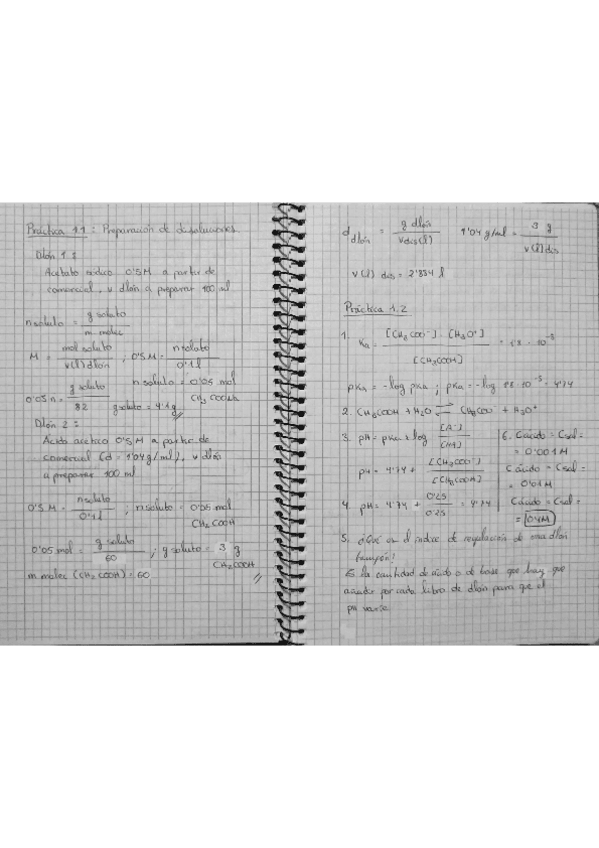 Práctica 1.1: Preparación de disoluciones.
Dlón 1:
Acetato sódico 0'5M a partir de
comercial, v dlón a preparar 100 ml
n soluto = g soluto / m molec
M = mol soluto / v(l) dlón ; 0'5M = n soluto / 0'1 l
n soluto = 0'05 mol CH3COONa
0'05 n = g soluto / 82 g soluto = 4'1 g
Dlón 2:
Ácido acético 0'5M a partir de
comercial (d = 1'04 g/ml), v dlón
a preparar 100 ml
0'5 M = n soluto / 0'1 l ; n soluto = 0'05 mol CH3COOH
0'05 mol = g soluto / 60 ; g soluto = 3 g CH3COOH
m molec (CH3COOH) = 60
d dlón = g dlón / v dis(l) 1'04 g/ml = 3 g / v(l) dis
v(l) dis = 2'884 l
Práctica 1.2
1. Ka = [CH3COO-] · [H3O+] / [CH3COOH] = 1'8 · 10-5
pKa = -log pKa ; pKa = -log 1'8 · 10-5 = 4'74
2. CH3COOH + H2O ⇄ CH3COO- + H3O+
3. pH = pKa + log [A-] / [HA]
pH = 4'74 + [CH3COO-] / [CH3COOH]
4. pH = 4'74 + 0'25 / 0'25 = 4'74
6. Cácido = Csal =
= 0'001M
Cácido = Csal =
= 0'01M
Cácido = Csal =
= 0'4M
5. ¿Qué es el índice de regulación de una dlón
tampón?
Es la cantidad de ácido o de base que hay que
añadir por cada litro de dlón para que el
pH varíe